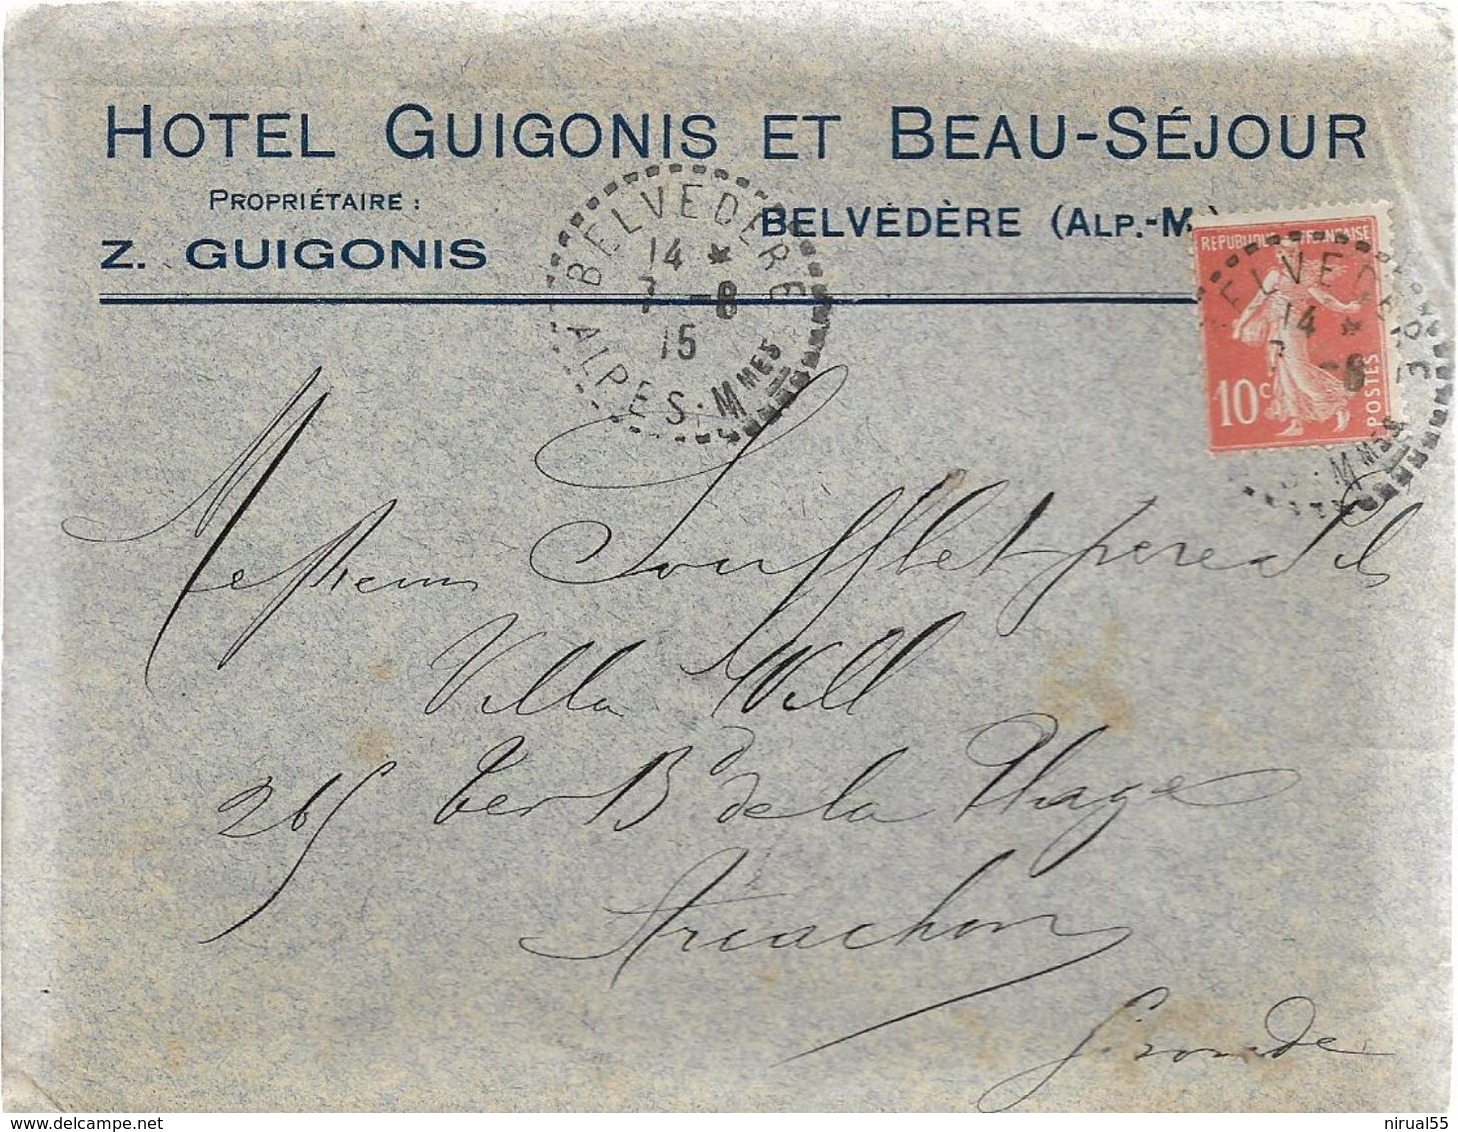 HOTEL GUIGONIS ET BEAU-SÉJOUR
PROPRIÉTAIRE :
Z. GUIGONIS
BELVÉDÈRE (ALP.-M
BELVEDERE
14 *
7 -8
15
ALPES-MMES
REPUBLIQUE FRANÇAISE
10c
POSTES
ELVEDERE
14 *
7 -8
S-MMES
Messieurs Soufflet père & fils
Villa Will
265 ter Bd de la Plage
Arcachon
Gironde
nirual55